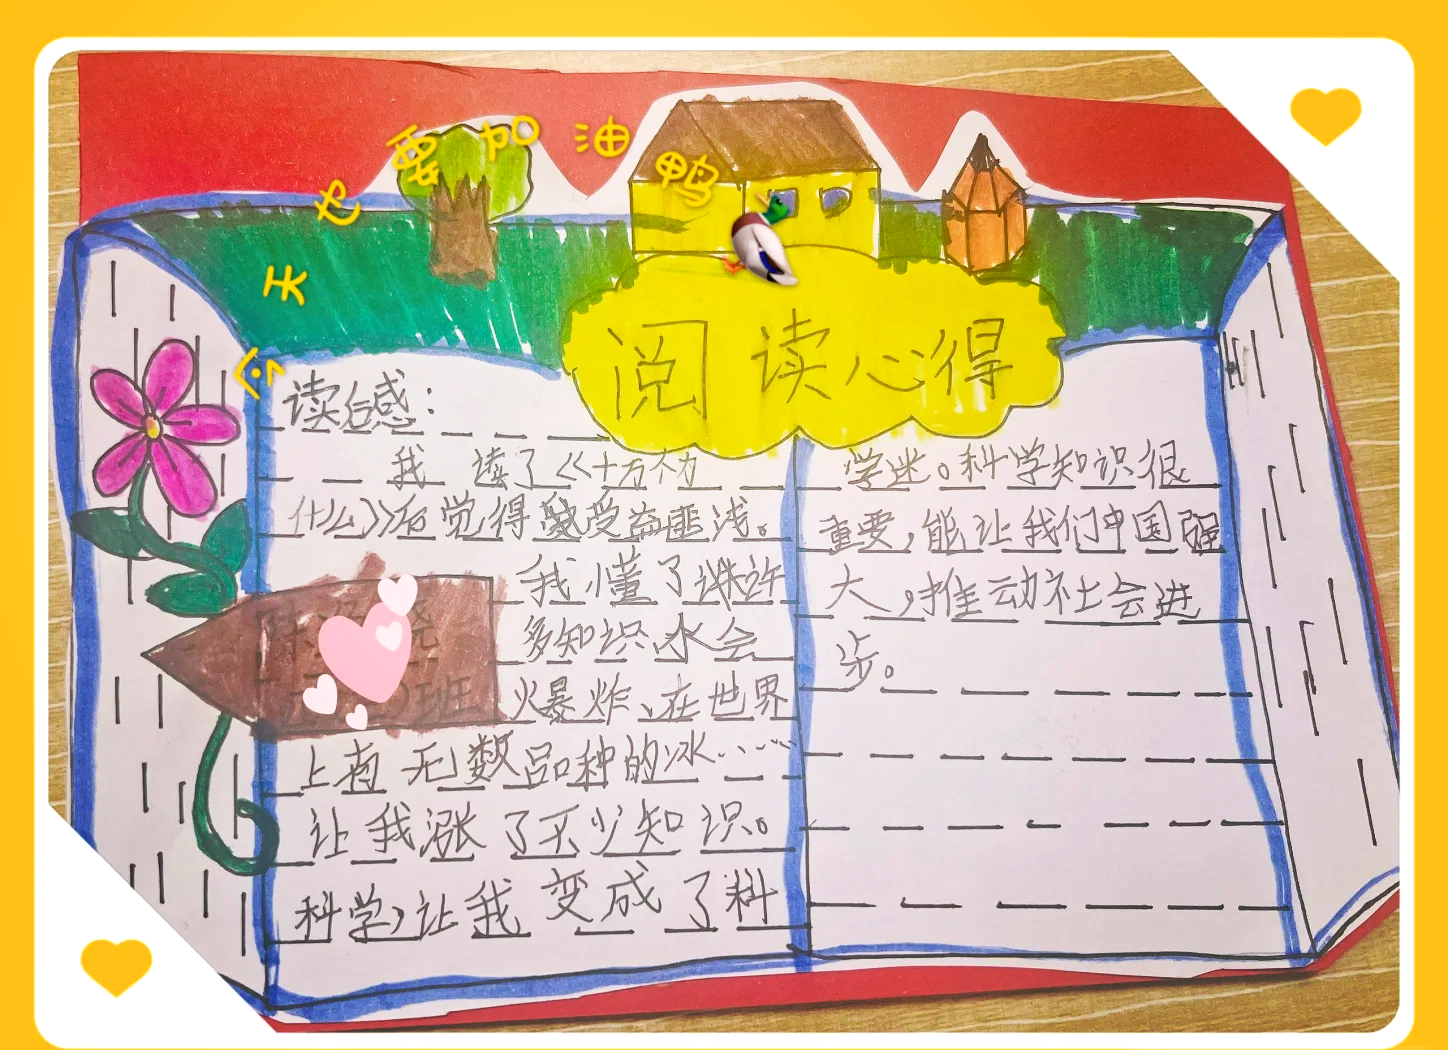 今天也要加油鸭
阅读心得
读后感:
我读了《十万个为
什么》后觉得受益匪浅。
我懂了许
多知识、水会
火爆炸、在世界
上有无数品种的冰……
让我涨了不少知识。
科学,让我变成了科
学迷。科学知识很
重要,能让我们中国强
大,推动社会进
步。
班